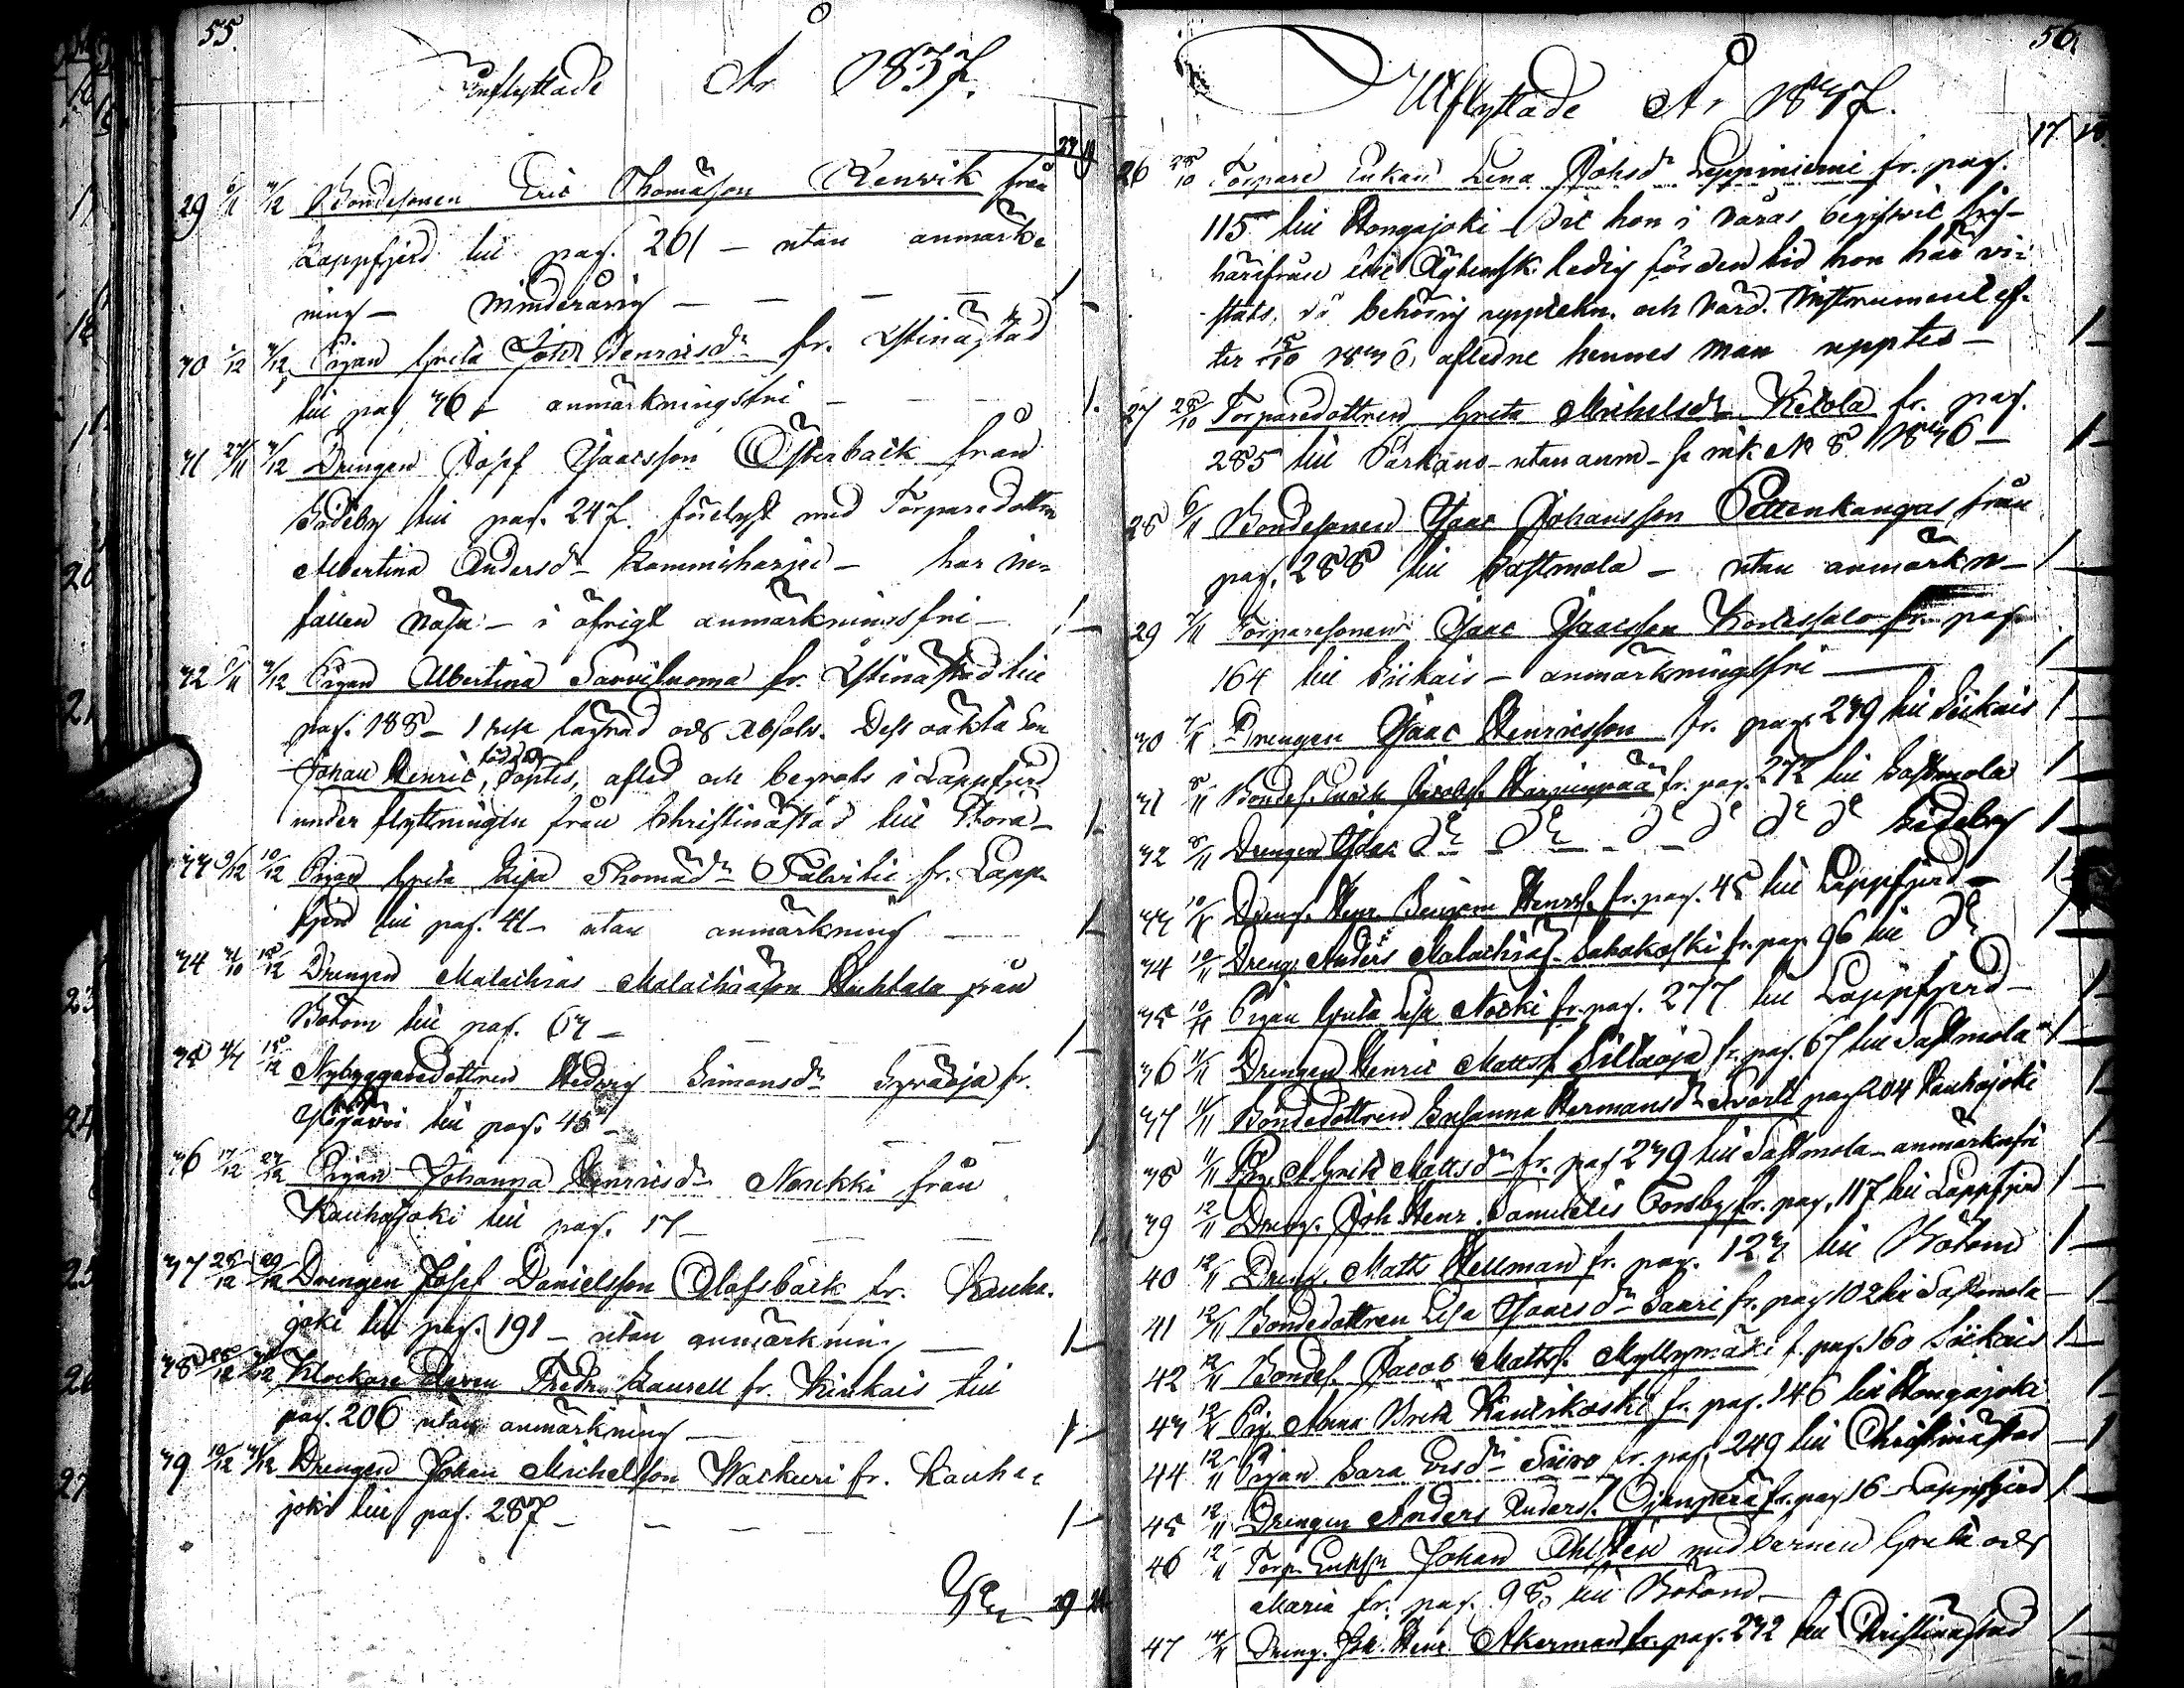 55.
Inflyttade År 1837.
29 6/11 3/12 Bondesonen Eric Thomasson Renvik från
Lappfjerd till pag. 261 – utan anmärk-
ning – minderårig – 1
30 1/12 3/12 Pigan Greta Joh. Henricsdr fr. Xstinæstad
till pag 36 – anmärkningsfri – 1.
31 27/11 3/12 Drengen Josef Isacsson Österback från
Sideby till pag. 247. förelyst med Torparedottren
Albertina Andersdr Kammiharju – har in-
fallen näsa – i öfrigt anmärkningsfri – 1
32 3/12 Pigan Albertina Sarviluoma fr. Xstinæstad till
pag. 188 – 1 resa lägrad och absolv. Dess oäkta Son
Johan Henric, född, döptes, afled och begrofs i Lappfjerd
under flyttningen från Christinæstad till Storå – 1
33 9/12 10/12 Pigan Greta Lisa Thomædr Talvitie fr. Lapp-
fjerd till pag. 41 – utan anmärkning – 1
34 31/10 15/12 Drengen Malachias Malachiasson Huhtala från
Bötom till pag. 63 – 1
35 4/3 15/12 Nybyggaredottren Hedvig Simonsdr Syräoja fr.
till pag. 45 – 1
36 17/12 27/12 Pigan Johanna Henricsdr Norikki från
Kauhajoki till pag. 13 – 1
37 25/12 29/12 Drengen Josef Danielsson Olofsbäck fr. Kauha-
joki till pag. 191 – utan anmärkning – 1
38 28/12 Klockare Eleven Fredr. Laurell fr. Kiukais till
pag. 206 utan anmärkning – 1
39 19/12 31/12 Drengen Johan Michelsson Wackuri fr. Kauha-
joki till pag. 287 – 1
56.
Utflyttade År 1837.
17 18.
26 28/10 Torpare Enkan Lena Johsdr Lappiniemi fr. pag.
115 till Hongajoki – dit hon i våras begifvit sig
härifrån till Äktensk. ledig för den tid hon här vi-
stats, då behörig uppteckn. och värd. Instrument ef-
ter 15/10 1836 aflidne hennes man upptes – 1
27 28/10 Torparedottren Greta Michelsdr Ketola fr. pag.
285 till Parkano – utan anm – se ink No 8 1836 – 1
28 6/11 Bondesonen Isaac Johansson Pettenkangas från
pag. 288 till Sastmola – utan anmärkn – 1
29 7/11 Torparesonen Isaac Isaacsson Korkessalo fr. pag.
164 till Siikais – anmärkningsfri – 1
30 7/11 Drengen Isaac Henricsson fr. pag. 239 till Siikais 1
31 8/11 Bondes. Enoch Jacobs. Harjunpää fr. pag. 272 till Sastmola 1
32 8/11 Drengen Isaac do do do do do do Sideby 1
33 10/11 Dreng. Henr. Benjam Henrss. fr. pag. 45 till Lappfjerd – 1
34 10/11 Dreng. Anders Malachiass. Sahakoski fr. pag. 96 till do 1
35 10/11 Pigan Greta Lisa Noski fr. pag. 277 till Lappfjerd – 1
36 11/11 Drengen Henric Mattss. Siltaoja fr. pag. 67 till Sastmola 1
37 11/11 Bondedottren Susanna Hermansdr Svarti pag 204 Kauhajoki 1
38 11/11 Pig. A. Greta Mattsdr fr. pag 239 till Sastmola – anmärknfri 1
39 12/11 Dreng. Joh Henr. Samuelis Forsby fr. pag. 117 till Lappfjerd 1
40 12/11 Dreng. Matts Hellman fr. pag. 123 till Bötom 1
41 12/11 Bondedottren Lisa Isaacsdr Saari fr. pag 102 till Sastmola – 1
42 12/11 Bondes. Jacob Mattss. Myllymäki f. pag. 160 Siikais 1
43 12/11 Pig. Anna Brita Kauriskoski fr. pag. 146 till Hongajoki 1
44 12/11 Pigan Sara Ersdr Siivo fr. pag. 249 till Christinæstad – 1
45 12/11 Drengen Anders Anderss. Ojanperä fr. pag 16 – Lappfjerd 1
46 12/11 Torp. Johan Ahlsten med barnen Greta och
Maria fr. pag. 98 till Bötom –
47 14/11 Dreng. Joh. Henr. Åkerman fr. pag. 232 till Christinæstad 1